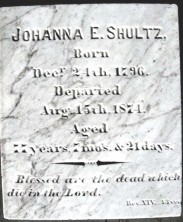 JOHANNA E. SHULTZ,
Born
Decr 24th, 1796.
Departed
Aug. 15th, 1874.
Aged
77 years, 7 mos. & 21 days.
Blessed are the dead which
die in the Lord.
Rev. XIV.